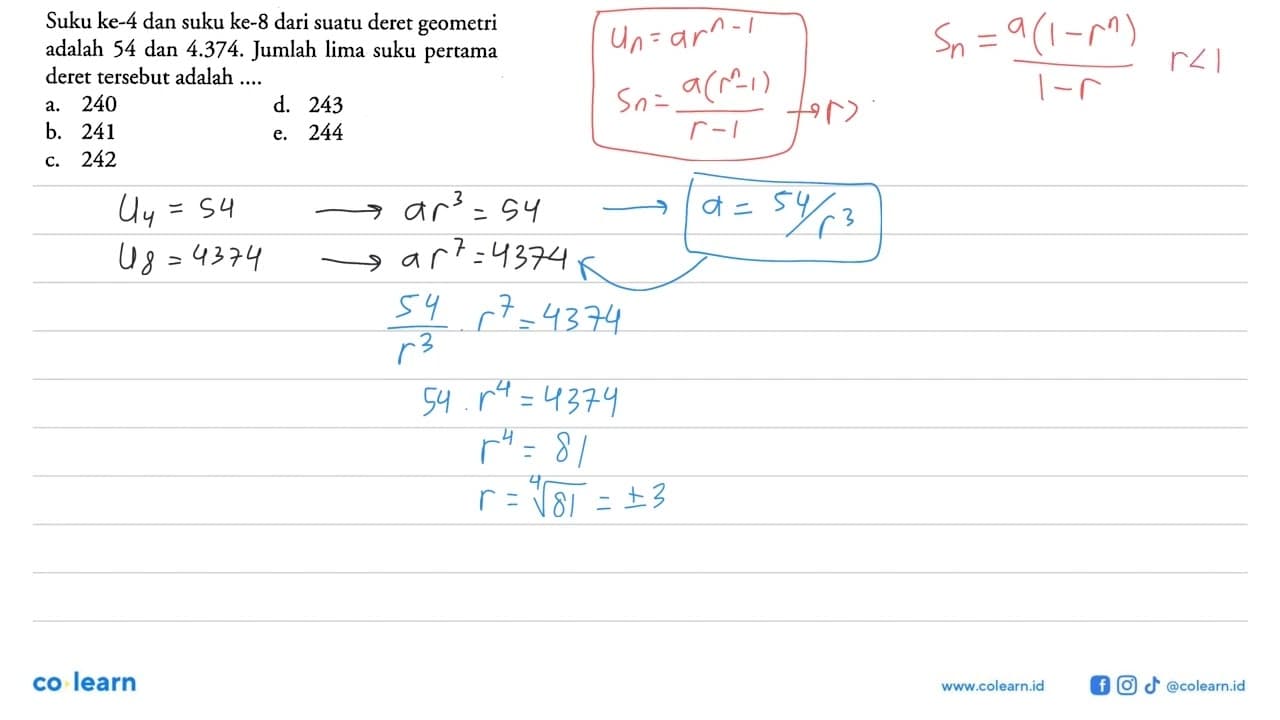 Suku ke-4 dan suku ke-8 dari suatu deret geometri
adalah 54 dan 4.374. Jumlah lima suku pertama
deret tersebut adalah ....
a. 240 d. 243
b. 241 e. 244
c. 242
Un = ar^n-1
Sn = a(r^n-1) / r-1 → r>
Sn = a(1-r^n) / 1-r r<1
U4 = 54 → ar³ = 54 → a = 54/r³
U8 = 4374 → ar⁷ = 4374
54/r³ . r⁷ = 4374
54 . r⁴ = 4374
r⁴ = 81
r = ⁴√81 = ±3
co learn
www.colearn.id @colearn.id